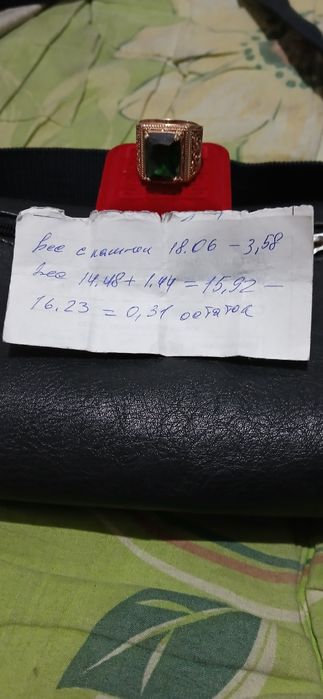 вес с камнем 18.06 – 3,58
вес 14.48 + 1.44 = 15,92 –
16.23 = 0,31 остаток